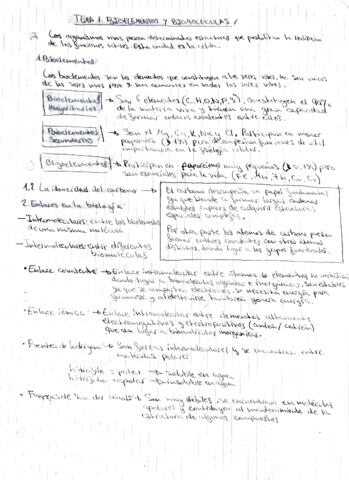 TEMA 1: BIOELEMENTOS Y BIOMOLÉCULAS
Los organismos vivos poseen determinadas estructuras que posibilitan la realización
de las funciones vitales. Esta unidad es la célula.
1. Bioelementos
Los bioelementos son los elementos que constituyen a los seres vivos, no son únicos
de los seres vivos pero son comunes en todos los seres vivos.
Bioelementos Mayoritarios → Son 6 elementos (C, H, O, N, P, S), constituyen el
de la materia viva y tienen una gran capacidad
de formar enlaces covalentes entre ellos.
Bioelementos Secundarios → Son el Mg, Ca, K, Na y Cl. Participan en menor
proporción pero desempeñan funciones de vital
importancia en la célula.
Oligoelementos → Participan en proporciones muy pequeñas pero
son esenciales para la vida. (Fe, Mn, Zn, Cu, Co)
1.1 La idoneidad del carbono →
El carbono desempeña un papel fundamental
ya que tiende a formar largas cadenas
estables capaces de adquirir estructuras
espaciales complejas.
Por otra parte los átomos de carbono pueden
formar enlaces covalentes con otros átomos
distintos, dando lugar a los grupos funcionales.
2. Enlaces en la biología
- Intramoleculares: entre los bioelementos
de una misma molécula
- Intermoleculares: entre diferentes
biomoléculas
• Enlace covalente → Enlace intramolecular entre átomos de elementos no metálicos
dando lugar a biomoléculas orgánicas e inorgánicas. Son estables
ya que se comparten electrones, se necesita energía para
formarse y al destruirse también genera energía.
• Enlace iónico → Enlace intramolecular entre elementos altamente
electronegativos y electropositivos (anión / catión)
que da lugar a biomoléculas inorgánicas.
• Puentes de hidrógeno → Son fuerzas intermoleculares y se encuentran entre
moléculas polares
= polar → soluble en agua
= apolar → insoluble en agua
• Fuerzas de Van der Waals → Son muy débiles, se encuentran en moléculas
apolares y contribuyen al mantenimiento de la
estructura de algunos compuestos